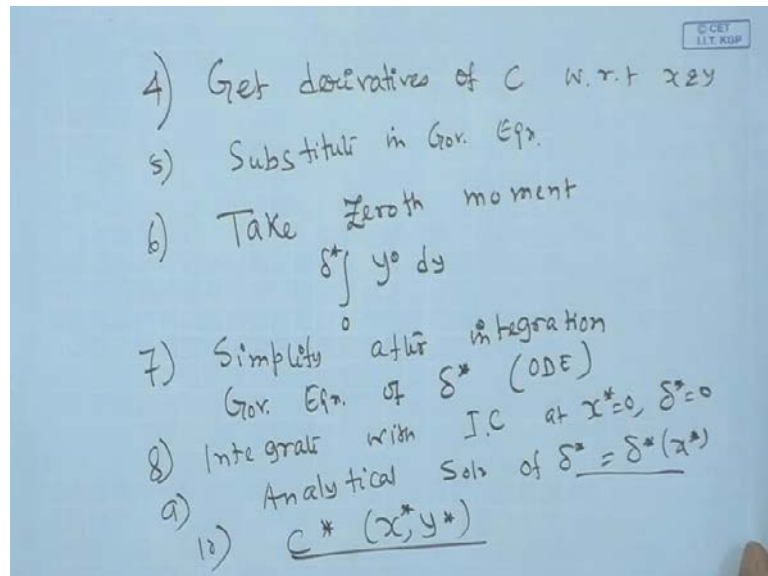 © CET
I.I.T. KGP
4) Get derivatives of C w.r.t x & y
5) Substitute in Gov. Eqn.
6) Take Zeroth moment
δ* ∫ y⁰ dy
0
7) Simplify after integration
Gov. Eqn. of δ* (ODE)
8) Integrate with I.C at x*=0, δ*=0
9) Analytical Soln of δ* = δ*(x*)
10) C* (x*, y*)